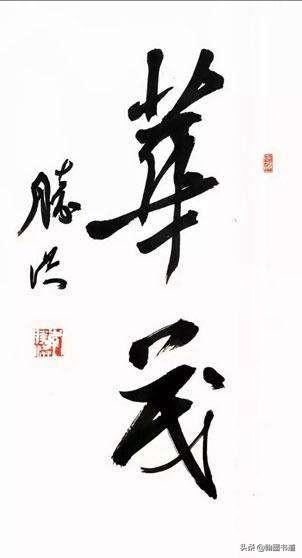 華茂
勝洪
头条 @翰墨书道